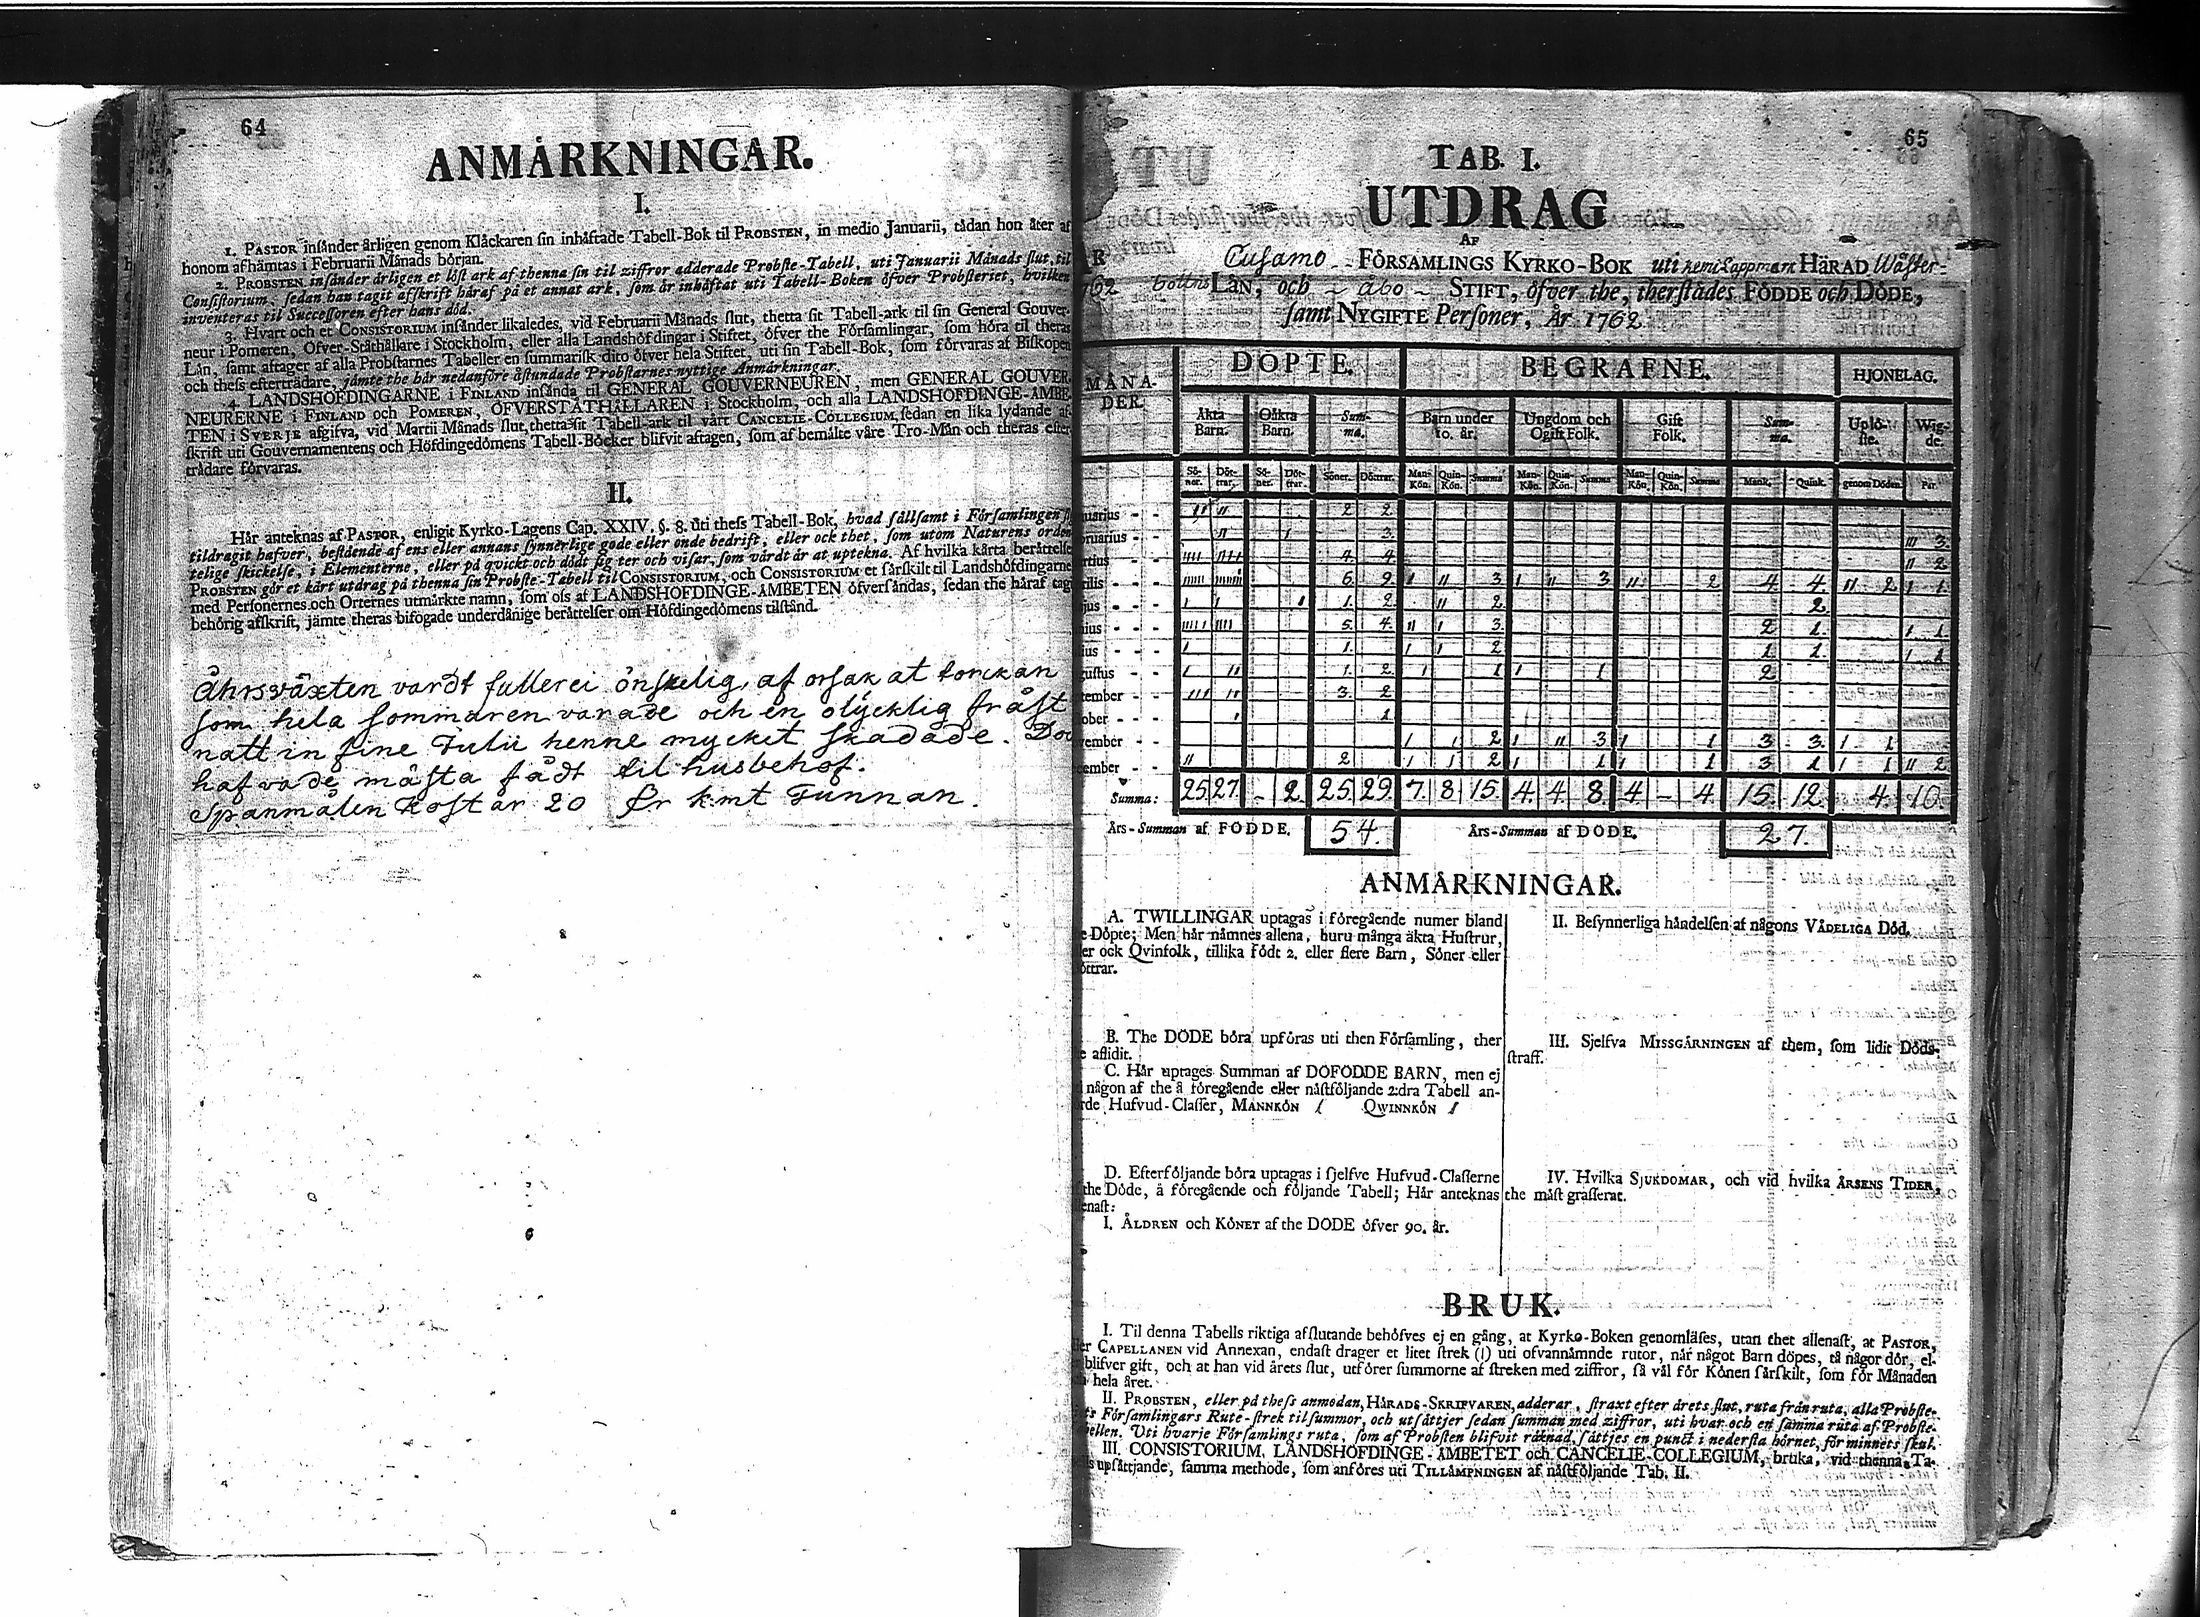 64
ANMÅRKNINGAR.
I.
1. PASTOR insånder årligen genom Klåckaren sin inhåftade Tabell-Bok til PROBSTEN, in medio Januarii, tådan hon åter af
honom afhåmtas i Februarii Månads början.
2. PROBSTEN insånder årligen et löst ark af thenna sin til ziffror adderade Probste-Tabell, uti Januarii Månads slut, til
Consistorium, sedan han tagit afskrift håraf på et annat ark, som år inhåftat uti Tabell-Boken öfver Probsteriet, hvilken
inventeras til Successoren efter hans död.
3. Hvart och et CONSISTORIUM insånder likaledes, vid Februarii Månads slut, thetta sit Tabell-ark til sin General Gouver-
neur i Pomeren, Öfver-Ståthållare i Stockholm, eller alla Landshöfdingar i Stiftet, öfver the Församlingar, som höra til theras
Lån, samt aftager af alla Probstarnes Tabeller en summarisk dito öfver hela Stiftet, uti sin Tabell-Bok, som förvaras af Biskopen
och thess eftertrådare, jämte the hår nedanföre åstundade Probstarnes nyttige Anmårkningar.
4. LANDSHÖFDINGARNE i FINLAND insånda til GENERAL GOUVERNEUREN, men GENERAL GOUVER-
NEURERNE i FINLAND och POMEREN, ÖFVERSTÅTHÅLLAREN i Stockholm, och alla LANDSHÖFDINGE-ÅMBE-
TEN i SVERJE afgifva, vid Martii Månads slut, thetta sit Tabell-ark til vårt CANCELIE-COLLEGIUM, sedan en lika lydande af-
skrift uti Gouvernamentens och Höfdingedömens Tabell-Böcker blifvit aftagen, som af bemålte våre Tro-Mån och theras efter
trådare förvaras.
II.
Hår anteknas af PASTOR, enligit Kyrko-Lagens Cap. XXIV. §. 8. uti thess Tabell-Bok, hvad sållsamt i Församlingen
tildragit hafver, bestående af ens eller annans synnerlige gode eller onde bedrift, eller ock thet, som utom Naturens orden
telige skickelse, i Elementerne, eller på qvickt och dödt sig ter och visar, som vårdt år at uptekna. Af hvilka kårta beråttelser
PROBSTEN gör et kårt utdrag på thenna sin Probste-Tabell til CONSISTORIUM, och CONSISTORIUM et sårskilt til Landshöfdingarne
med Personernes och Orternes utmårkte namn, som oss af LANDSHÖFDINGE-ÅMBETEN öfversåndas, sedan the håraf tag
behörig afskrift, jämte theras bifogade underdånige beråttelser om Höfdingedömens tilstånd.
Åhrsväxten vardt fullerei önskelig, af orsak at torckan
som hela sommaren varade och en olycklig fråst
natt in fine Julii henne mycket skadade. Doc
hafvade måsta fådt til husbehof.
Spanmålen kostar 20 Dr kmt Tunnan.
65
TAB. I.
UTDRAG
AF
Cusamo FÖRSAMLINGS KYRKO-BOK uti Kemi Lappmark HÄRAD Wåster-
bottns LÄN, och Åbo STIFT, öfver the, therstådes FÖDDE och DÖDE,
samt NYGIFTE Personer, År 1762
MÅNA-DER. DÖPTE. BEGRAFNE. HJONELAG.
Åkta Barn. Oåkta Barn. Summa. Barn under 10. år. Ungdom och Ogift Folk. Gift Folk. Summa. Uplö-ste. Wig-de.
Sö-ner. Döt-trar. Sö-ner. Döt-trar. Söner. Döttrar. Man-Kön. Quin-Kön. Summa Man-Kön. Quin-Kön. Summa Man-Kön. Quin-Kön. Summa Mank. Quink. genom Döden. Par.
uarius - - 11 11 2 2
ruarius - - 11 1 3. 111 3.
rtius - - 1111 1111 4. 4. 11 2
rilis - - 6. 9. 1 11 3 1 11 3 11 2 4. 4. 11 2 1 1.
jus - - 1 1 1 1. 2. 11 2 2
nius - - 11111 1111 5. 4. 11 1 3. 2 1. 1 1
ius - - 1 1. 1 1 2 1 1. 1 1
gustus - - 1 11 1. 2 1 1 1 1 2
tember - - 111 11 3. 2
ober - - 1 1
vember - - 1 1 2 1 11 3 1 1 3 3. 1 1
cember - - 11 2 1 1 2 1 1 1 1 3 1 1 1 11 2
Summa: 25 27 - 2 25 29 7. 8 15. 4. 4. 8. 4 - 4. 15. 12. 4. 10.
Års-Summan af FÖDDE. 54. Års-Summan af DÖDE. 27.
ANMÅRKNINGAR.
A. TWILLINGAR uptagas i föregående numer bland
e Döpte; Men hår nåmnes allena, huru många äkta Hustrur,
er ock Qvinfolk, tillika födt 2. eller flere Barn, Söner eller
öttrar.
B. The DÖDE böra upföras uti then Församling, ther
e aflidit.
C. Hår uptages Summan af DÖFÖDDE BARN, men ej
någon af the å föregående eller nåstföljande 2:dra Tabell an-
rde Hufvud-Classer, MANNKÖN 1 QWINNKÖN 1
D. Efterföljande böra uptagas i sjelfve Hufvud-Classerne
the Döde, å föregående och följande Tabell; Hår anteknas
enast:
I. ÅLDREN och KÖNET af the DÖDE öfver 90. år.
II. Besynnerliga håndelsen af någons VÅDELIGA Död.
III. Sjelfva MISSGÅRNINGEN af them, som lidit Döds-
straff.
IV. Hvilka SJUKDOMAR, och vid hvilka ÅRSENS TIDER,
the måst grasserat.
BRUK.
I. Til denna Tabells riktiga afslutande behöfves ej en gång, at Kyrko-Boken genomläses, utan thet allenast, at PASTOR,
er CAPELLANEN vid Annexan, endast drager et litet strek (|) uti ofvannåmnde rutor, når något Barn döpes, tå någor dör, el-
blifver gift, och at han vid årets slut, utförer summorne af streken med ziffror, så vål för Könen sårskilt, som för Månaden
hela året.
II. PROBSTEN, eller på thess anmodan, HÅRADS-SKRIFVAREN, adderar, straxt efter årets slut, ruta från ruta, alla Probste-
ts Församlingars Rute-strek til summor, och utsåttjer sedan summan med ziffror, uti hvar och en samma ruta af Probste-
bellen. Uti hvarje Församlings ruta, som af Probsten blifvit råknad, såttjes en punct i nedersta hörnet, för minnets skul.
III. CONSISTORIUM, LANDSHÖFDINGE-ÅMBETET och CANCELIE-COLLEGIUM, bruka, vid thenna Ta-
s upsåttjande, samma methode, som anföres uti TILLÅMPNINGEN af nåstföljande Tab. II.